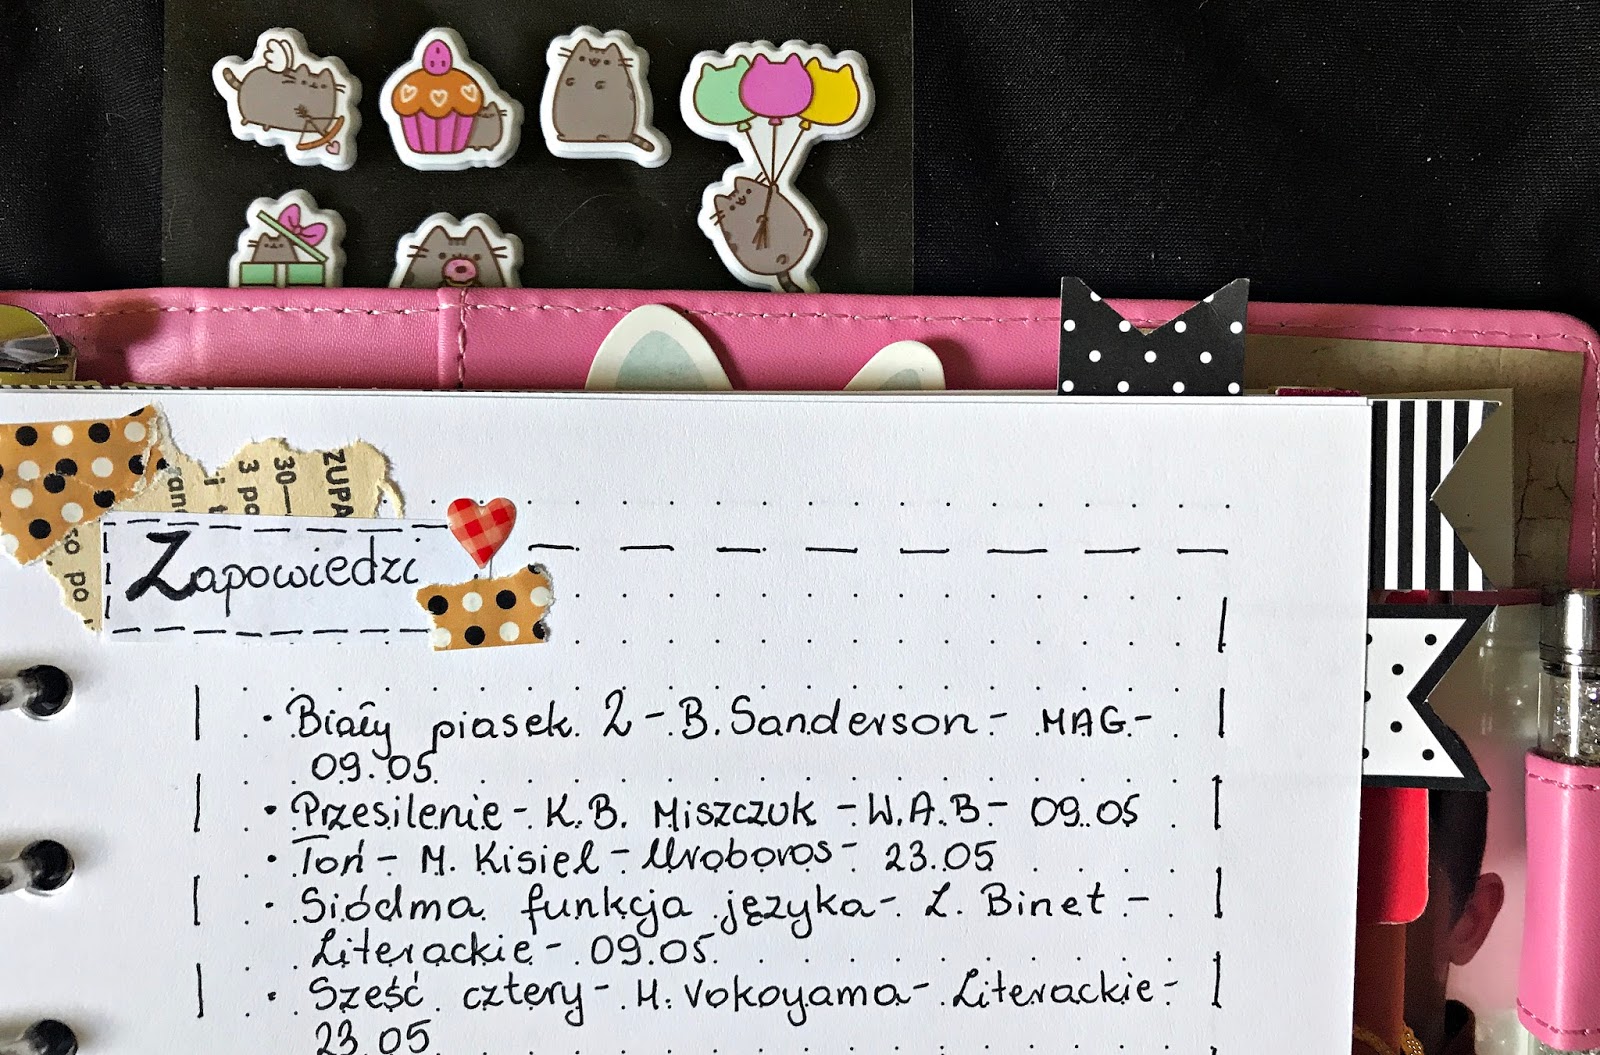 ZUPA
30—
3 po
i t
ran
so, po
Zapowiedzi
• Biały piasek 2 - B. Sanderson - MAG -
09.05
• Przesilenie - K.B. Miszczuk - W.A.B - 09.05
• Toń - M. Kisiel - Uroboros - 23.05
• Siódma funkcja języka - L. Binet -
Literackie - 09.05
• Sześć cztery - H. Yokoyama - Literackie -
23.05